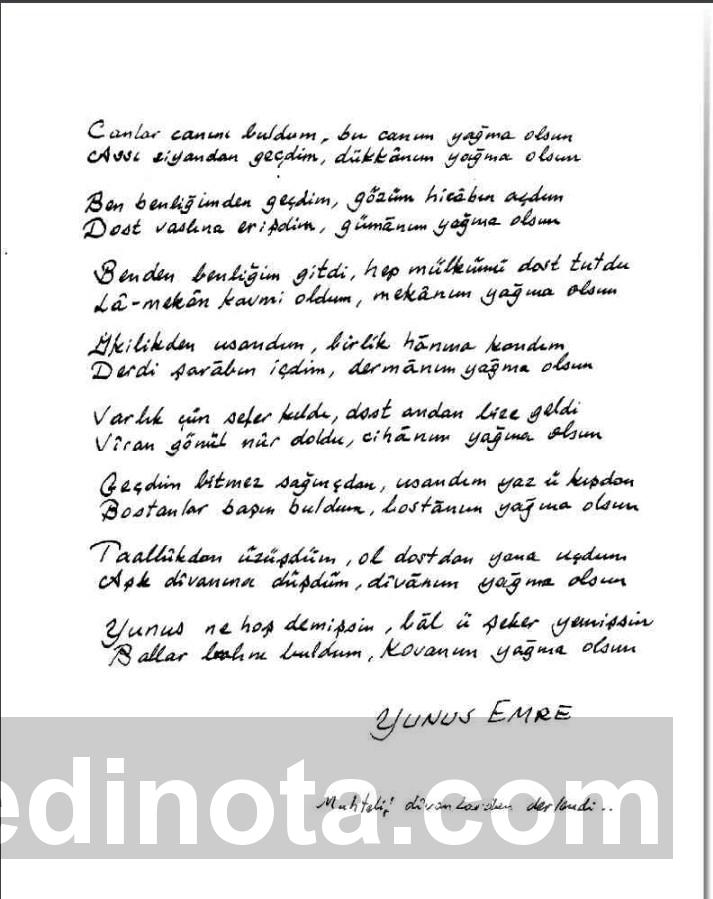 Canlar canını buldum, bu canım yağma olsun
Assı ziyandan geçdim, dükkânım yağma olsun
Ben benliğimden geçdim, gözüm hicâbın açdım
Dost vaslına erişdim, gümânım yağma olsun
Benden benliğim gitdi, hep mülkümü dost tutdu
Lâ-mekân kavmi oldum, mekânım yağma olsun
İkilikden usandım, birlik hânına kandım
Derdi şarâbın içdim, dermânım yağma olsun
Varlık çün sefer kıldı, dost andan bize geldi
Vîran gönül nûr doldu, cihânım yağma olsun
Geçdim bitmez sağınçdan, usandım yaz ü kışdan
Bostanlar başın buldum, bostânım yağma olsun
Taallûkdan üzüşdüm, ol dostdan yana uçdum
Aşk dîvanına düşdüm, dîvânım yağma olsun
Yunus ne hoş demişsin, bâl ü şeker yemişsin
Ballar balını buldum, Kovanım yağma olsun
YUNUS EMRE
Muhtelif dîvanlardan derlendi..
edinota.com